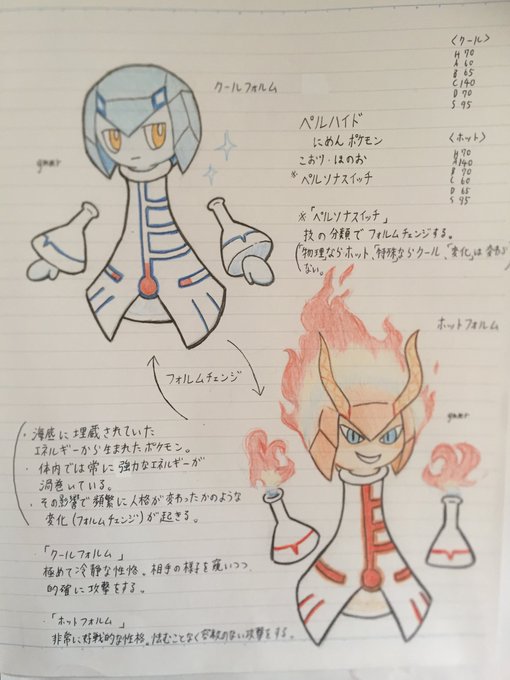 〈クール〉
H 70
A 60
B 65
C 140
D 70
S 95
クールフォルム
ペルハイド
にめんポケモン
こおり・ほのお
※ペルソナスイッチ
〈ホット〉
H 70
A 140
B 70
C 60
D 65
S 95
※「ペルソナスイッチ」
技の分類でフォルムチェンジする。
(「物理」ならホット、「特殊」ならクール、「変化」は変わらない。)
ホットフォルム
フォルムチェンジ
・海底に埋蔵されていた
エネルギーから生まれたポケモン。
・体内では常に強力なエネルギーが
渦巻いている。
・その影響で頻繁に人格が変わったかのような
変化(フォルムチェンジ)が起きる。
・「クールフォルム」
極めて冷静な性格。相手の様子を窺いつつ
的確に攻撃をする。
・「ホットフォルム」
非常に好戦的な性格。怯むことなく容赦のない攻撃をする。